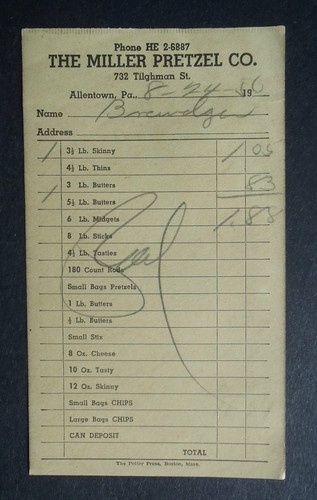 Phone HE 2-6887
THE MILLER PRETZEL CO.
732 Tilghman St.
Allentown, Pa., 8-24-56 19
Name
Address
1 3½ Lb. Skinny 1 05
4½ Lb. Thins
1 3 Lb. Butters 83
5½ Lb. Butters
6 Lb. Midgets 1.88
8 Lb. Sticks
4½ Lb. Tasties
180 Count Rods
Small Bags Pretzels
1 Lb. Butters
½ Lb. Butters
Small Stix
8 Oz. Cheese
10 Oz. Tasty
12 Oz. Skinny
Small Bags CHIPS
Large Bags CHIPS
CAN DEPOSIT
TOTAL
The Potter Press, Boston, Mass.